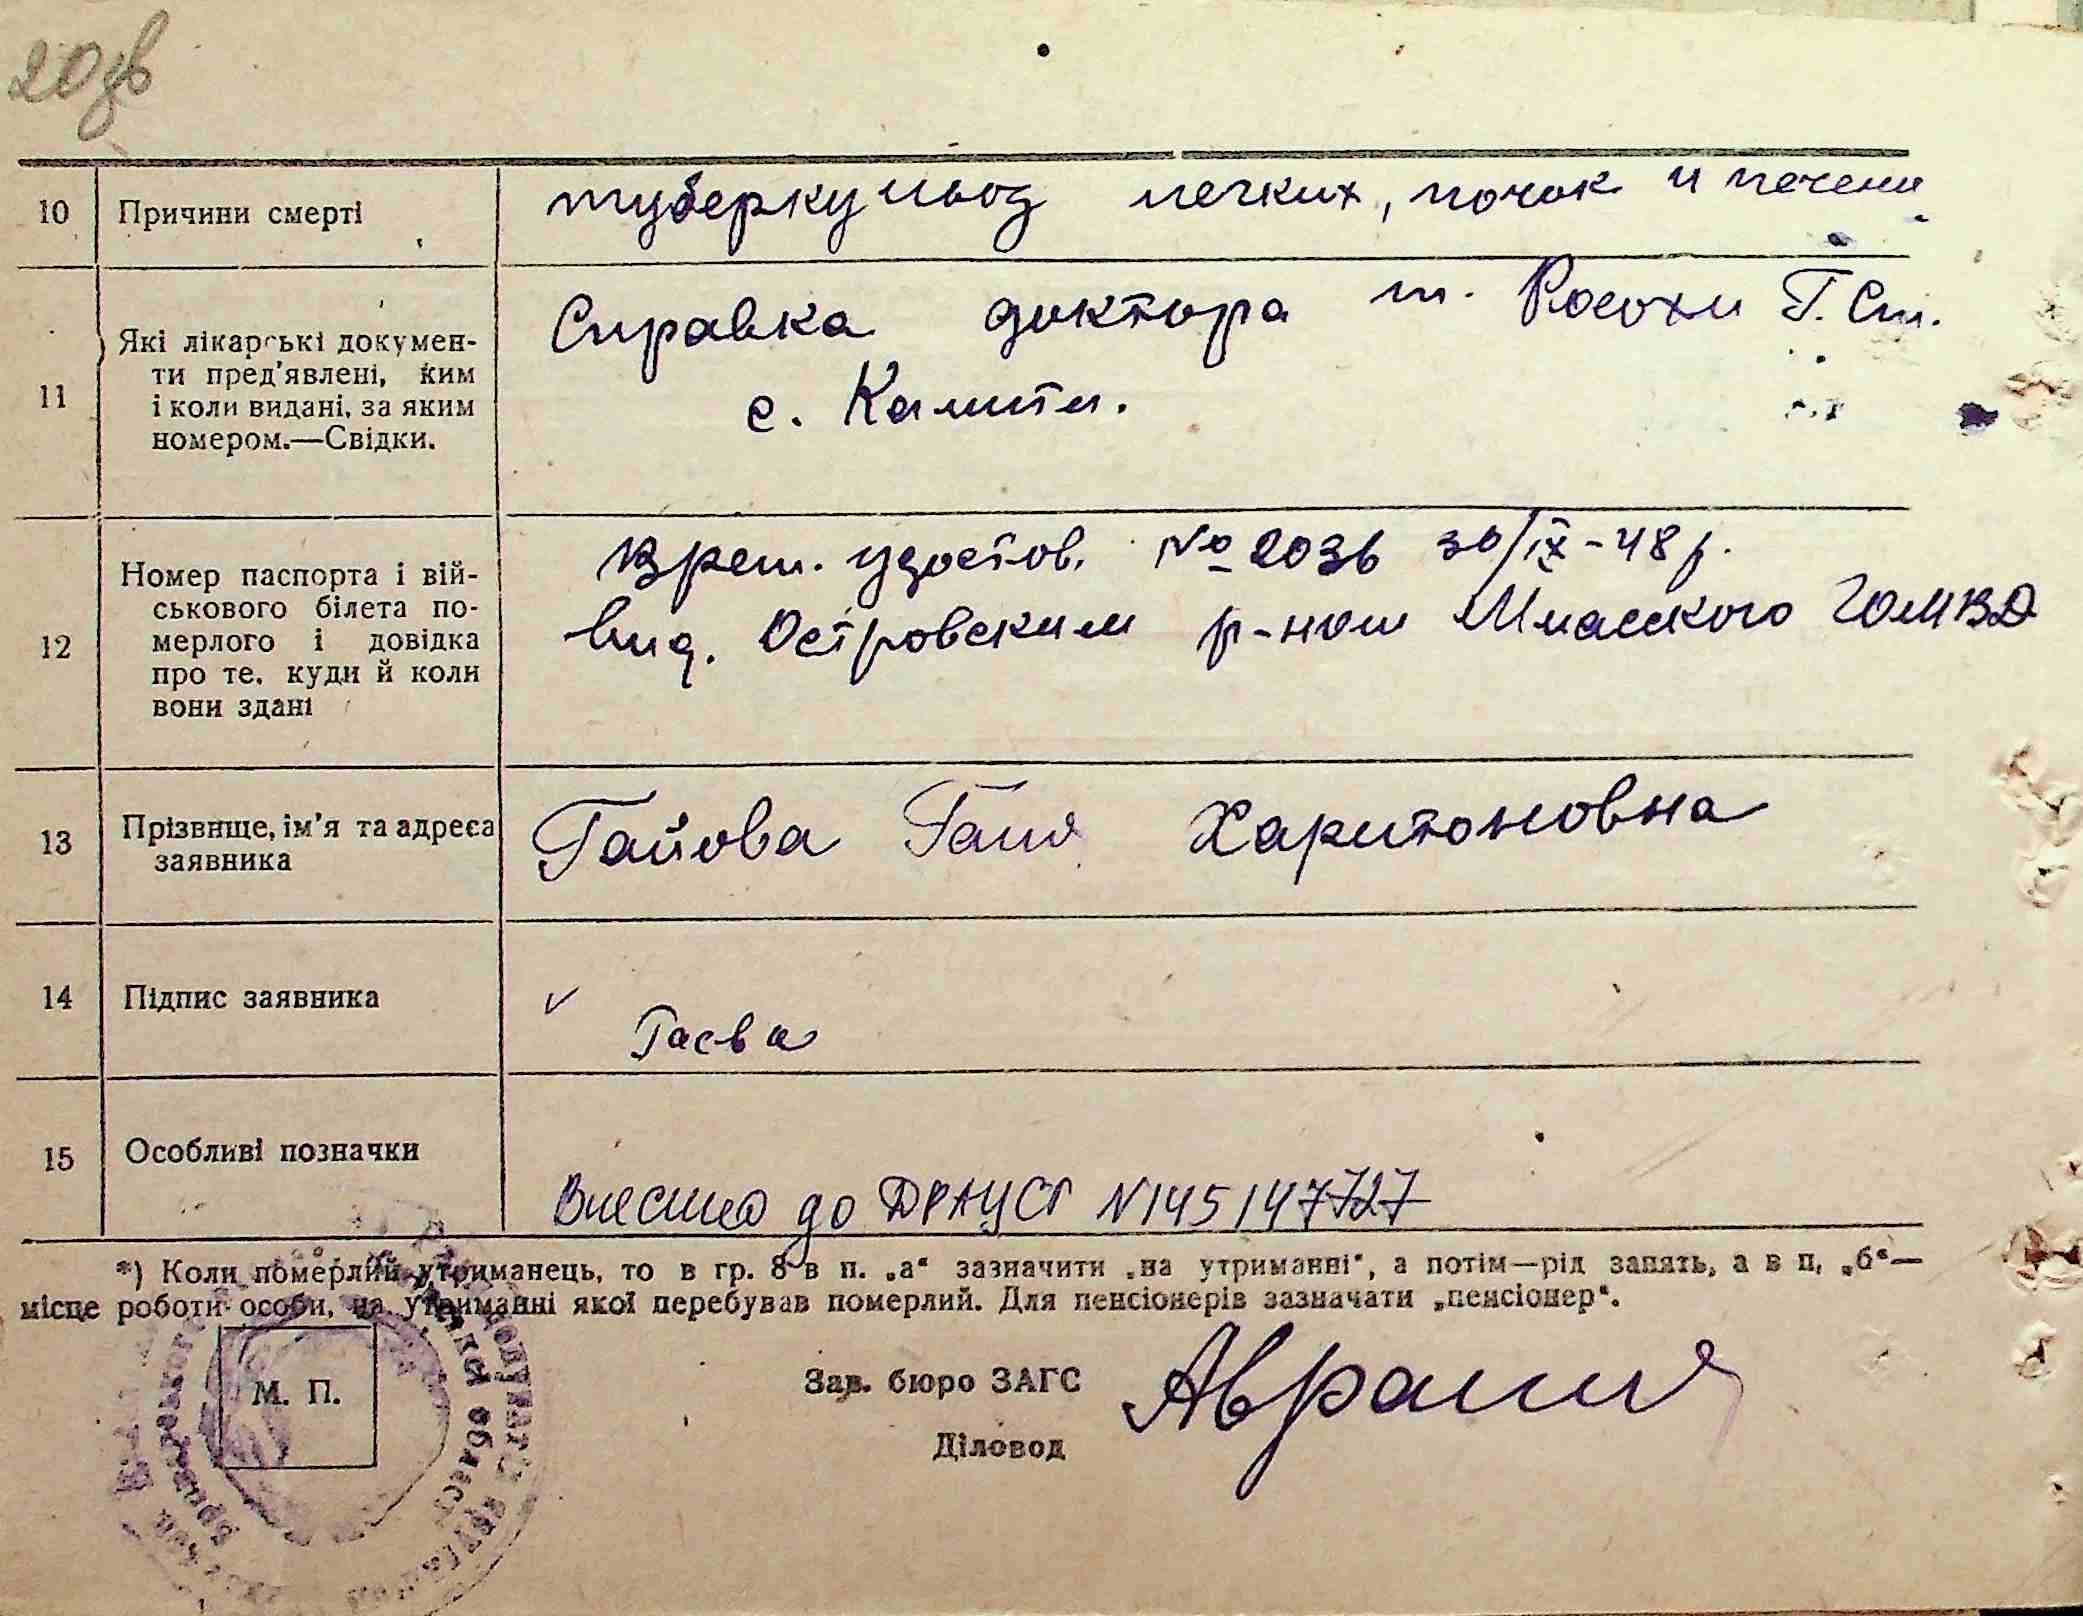 20зв
10 Причини смерті туберкульоз легких, почок и печени
11 Які лікарські докумен-
ти пред'явлені, ким
і коли видані, за яким
номером.—Свідки.
Справка доктора т. Росохи Г. Ст.
с. Калити.
12 Номер паспорта і вій-
ськового білета по-
мерлого і довідка
про те, куди й коли
вони здані
Врем. удостов. № 2036 30/ІХ-48 р.
Вид. Островским р-ном Миасского ГОМВД
13 Прізвище, ім'я та адреса
заявника
Гайова Ганя Харитоновна
14 Підпис заявника
Гаєва
15 Особливі позначки
Внесено до ДРАЦСГ N145147727
*) Коли померлий утриманець, то в гр. 8 в п. „а“ зазначити „на утриманні“, а потім—рід занять, а в п. „б“—
місце роботи особи, на утриманні якої перебував померлий. Для пенсіонерів зазначати „пенсіонер“.
М. П.
області
Зав. бюро ЗАГС
Діловод